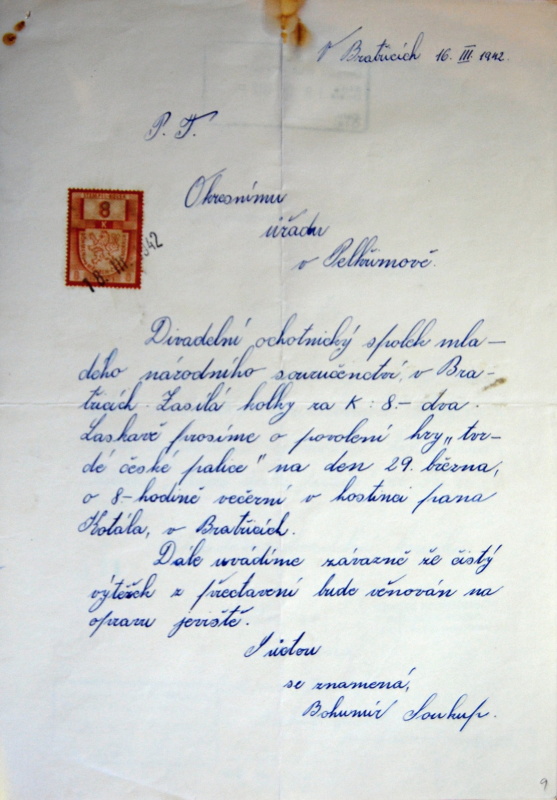 V Bratřicích 16. III. 1942.
P. T.
Okresnímu
úřadu
v Pelhřimově.
8
K
18. III. 1942
Divadelní ochotnický spolek mla-
dého národního souručenství, v Bra-
třicích. Zasílá kolky za K : 8.- dva.
Laskavě prosíme o povolení hry „tvr-
dé české palice" na den 29. března,
o 8-hodině večerní v hostinci pana
Kotála, v Bratřicích.
Dále uvádíme závazně že čistý
výtěžek z představení bude věnován na
opravu jeviště.
S úctou
se znamená,
Bohumír Soukup.
9